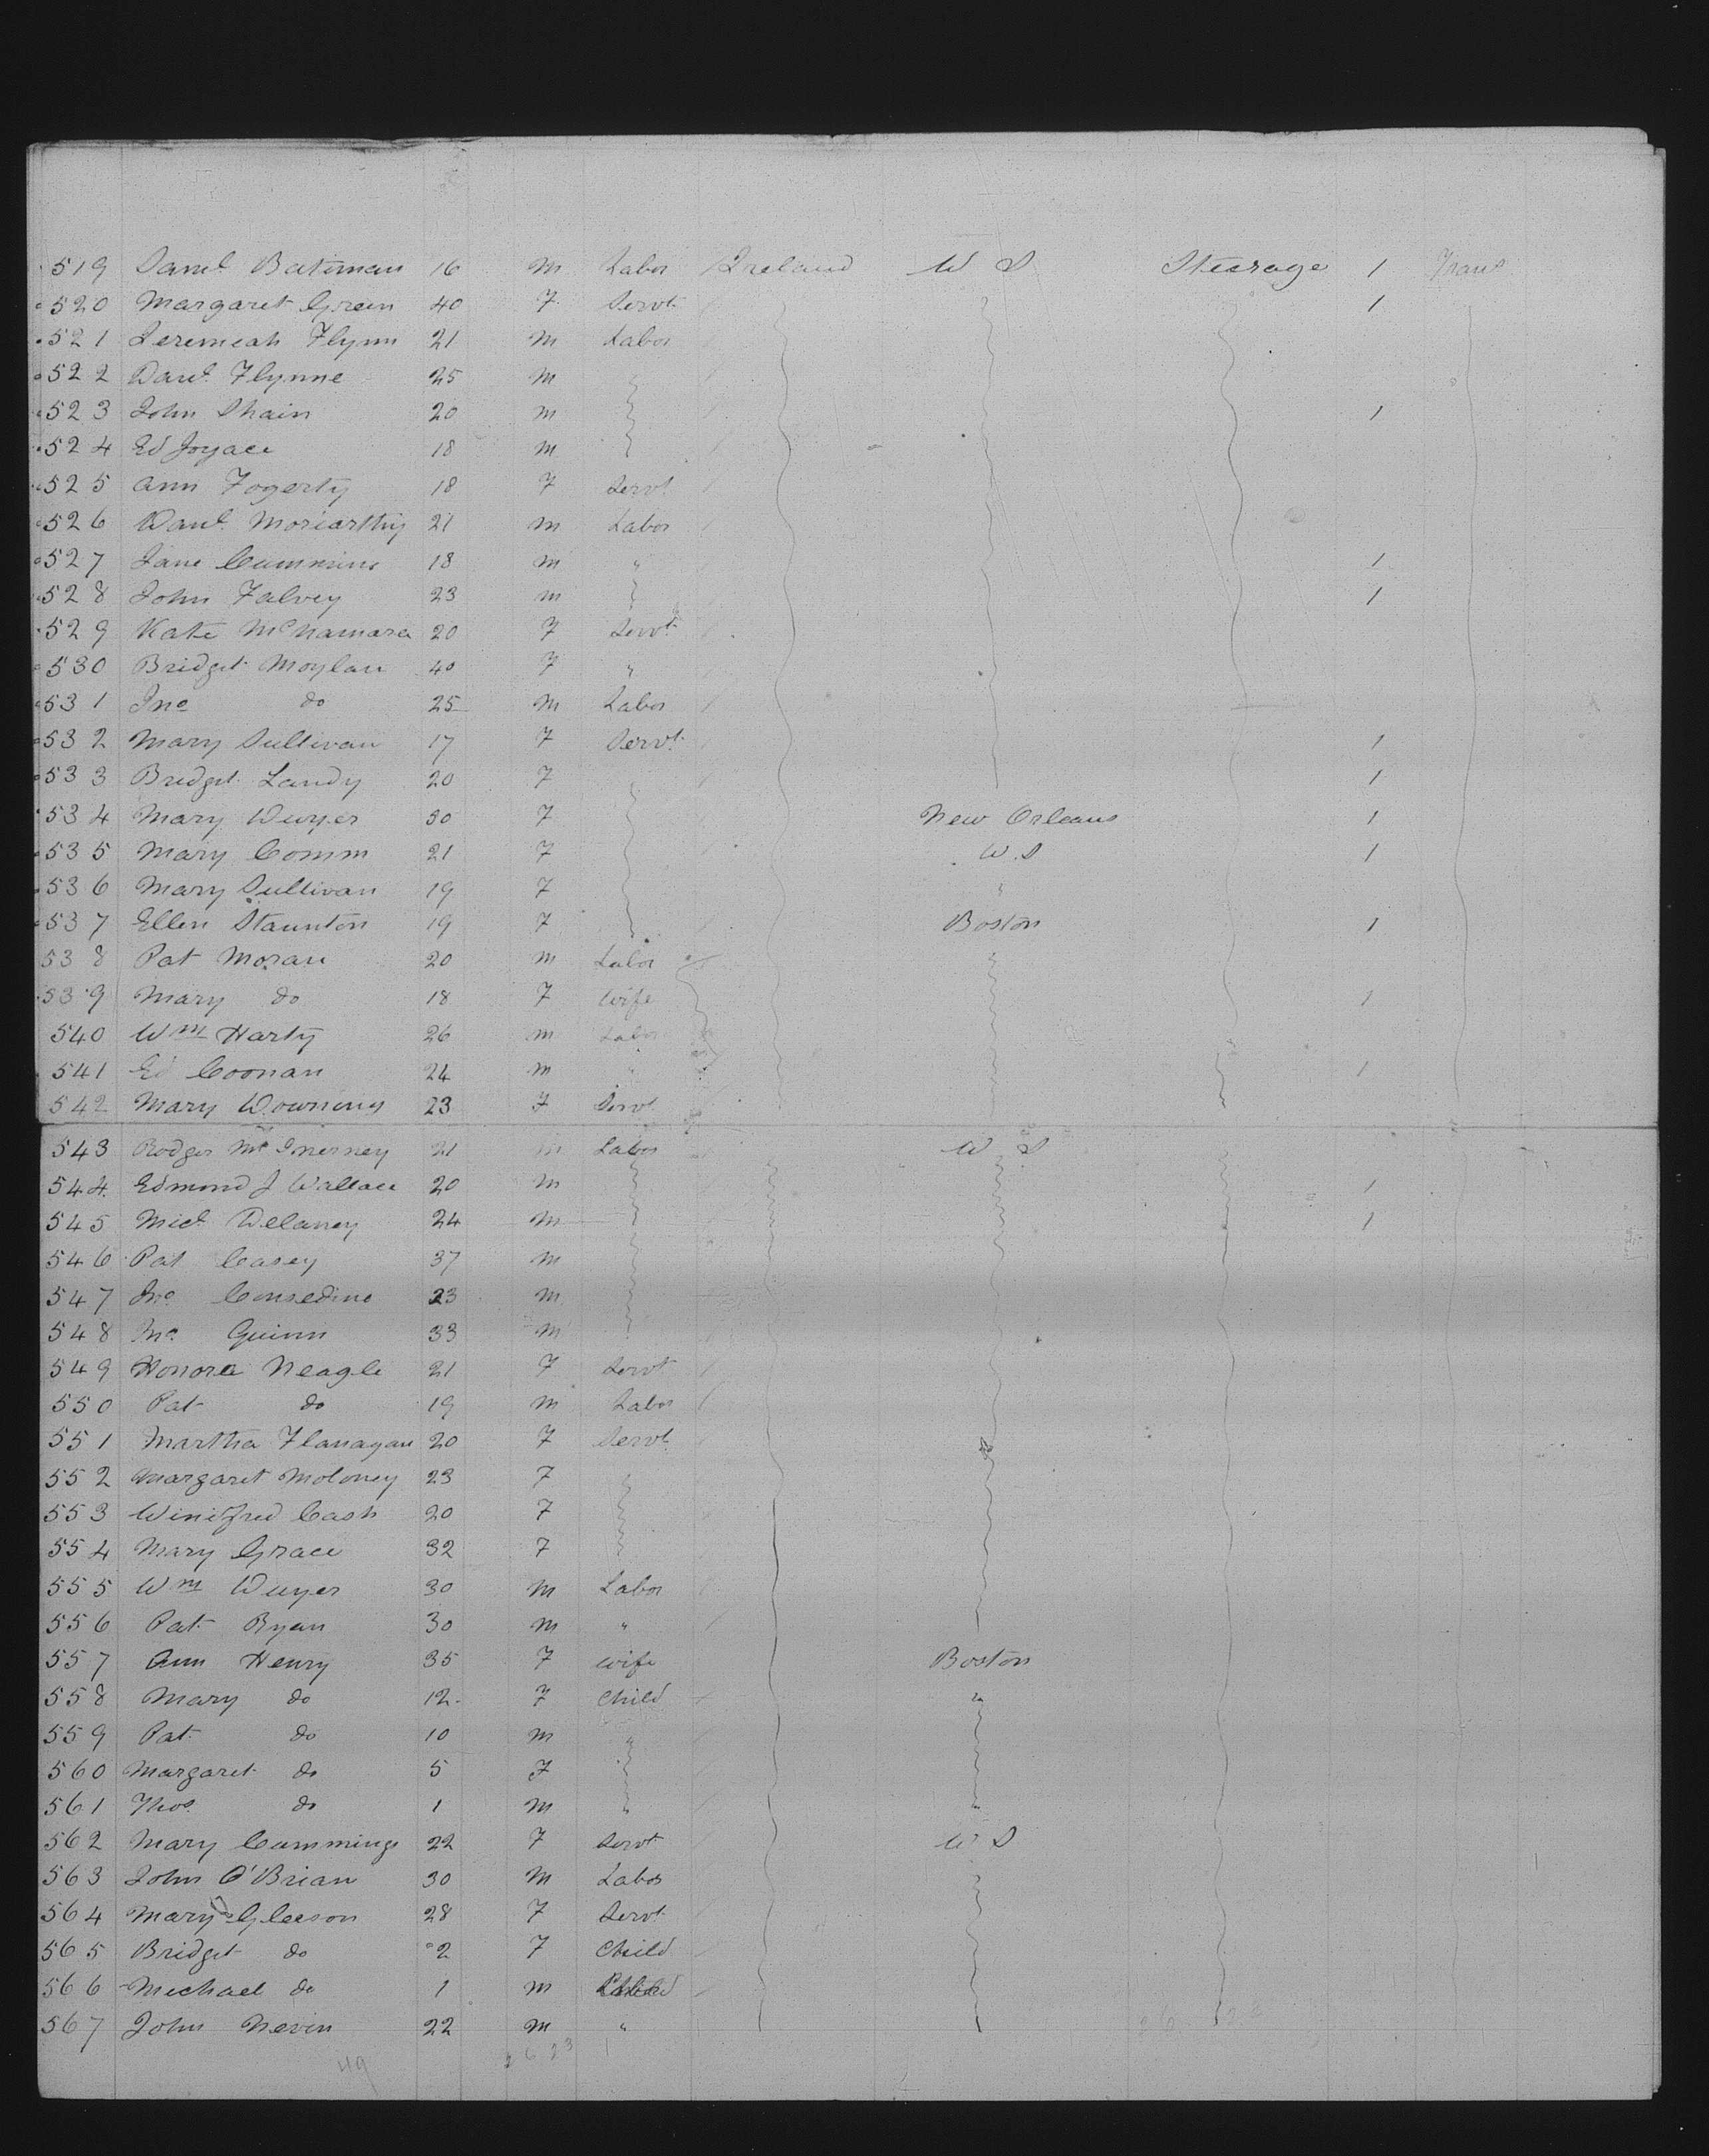 519 Danl Bateman 16 M Labor Ireland W S Steerage 1 Trans
520 Margaret Green 40 F Servt 1
521 Jeremeah Flynn 21 M Labor
522 Danl Flynne 25 M
523 John Shain 20 M 1
524 Ed Joyace 18 M
525 Ann Fogerty 18 F Servt
526 Danl Moriarthy 21 M Labor
527 Jane Cummins 18 M " 1
528 John Falvey 23 M 1
529 Kate McNamara 20 F Servt
530 Bridget Moylan 40 F "
531 Jno do 25 M Labor
532 Mary Sullivan 17 F Servt 1
533 Bridget Landy 20 F 1
534 Mary Dwyer 30 F New Orleans 1
535 Mary Comm 21 F W.S 1
536 Mary Sullivan 19 F "
537 Ellen Staunton 19 F Boston 1
538 Pat Moran 20 M Labor
539 Mary do 18 F Wife 1
540 Wm Harty 26 M Labor
541 Ed Coonan 24 M " 1
542 Mary Downing 23 F Servt
543 Rodger McInerney 21 M Labor W S
544 Edmond J Wallace 20 M 1
545 Micl Delaney 24 M 1
546 Pat Casey 37 M
547 Jno Consedine 23 M
548 Jno Quinn 33 M
549 Honora Neagle 21 F Servt
550 Pat do 19 M Labor
551 Martha Flanagan 20 F Servt
552 Margaret Moloney 23 F
553 Winifred Cash 20 F
554 Mary Grace 32 F
555 Wm Dwyer 30 M Labor
556 Pat Ryan 30 M "
557 Ann Henry 35 F Wife Boston
558 Mary do 12 F Child "
559 Pat do 10 M "
560 Margaret do 5 F
561 Thos do 1 M " "
562 Mary Cummings 22 F Servt W S
563 John O'Brian 30 M Labor
564 Mary Gleeson 28 F Servt
565 Bridget do 2 F Child
566 Michael do 1 M Child
567 John Nevin 22 M "
49 26 23